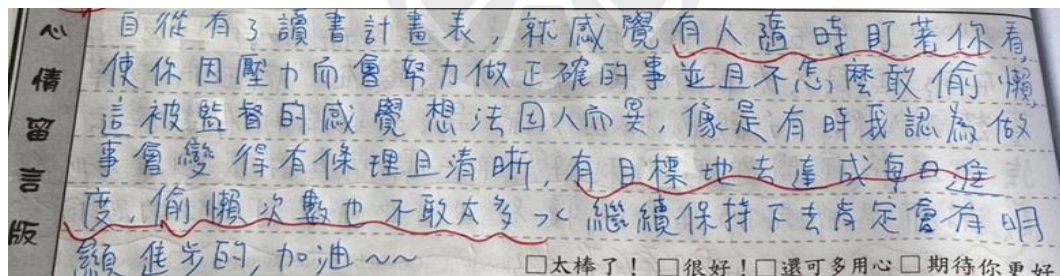 心情留言版
自從有了讀書計畫表,就感覺有人隨時盯著你看,
使你因壓力而會努力做正確的事並且不怎麼敢偷懶,
這被監督的感覺想法因人而異,像是有時我認為做
事會變得有條理且清晰,有目標地去達成每日進
度,偷懶次數也不敢太多>< 繼續保持下去肯定會有明
顯進步的,加油~~
□太棒了!□很好!□還可多用心□期待你更好